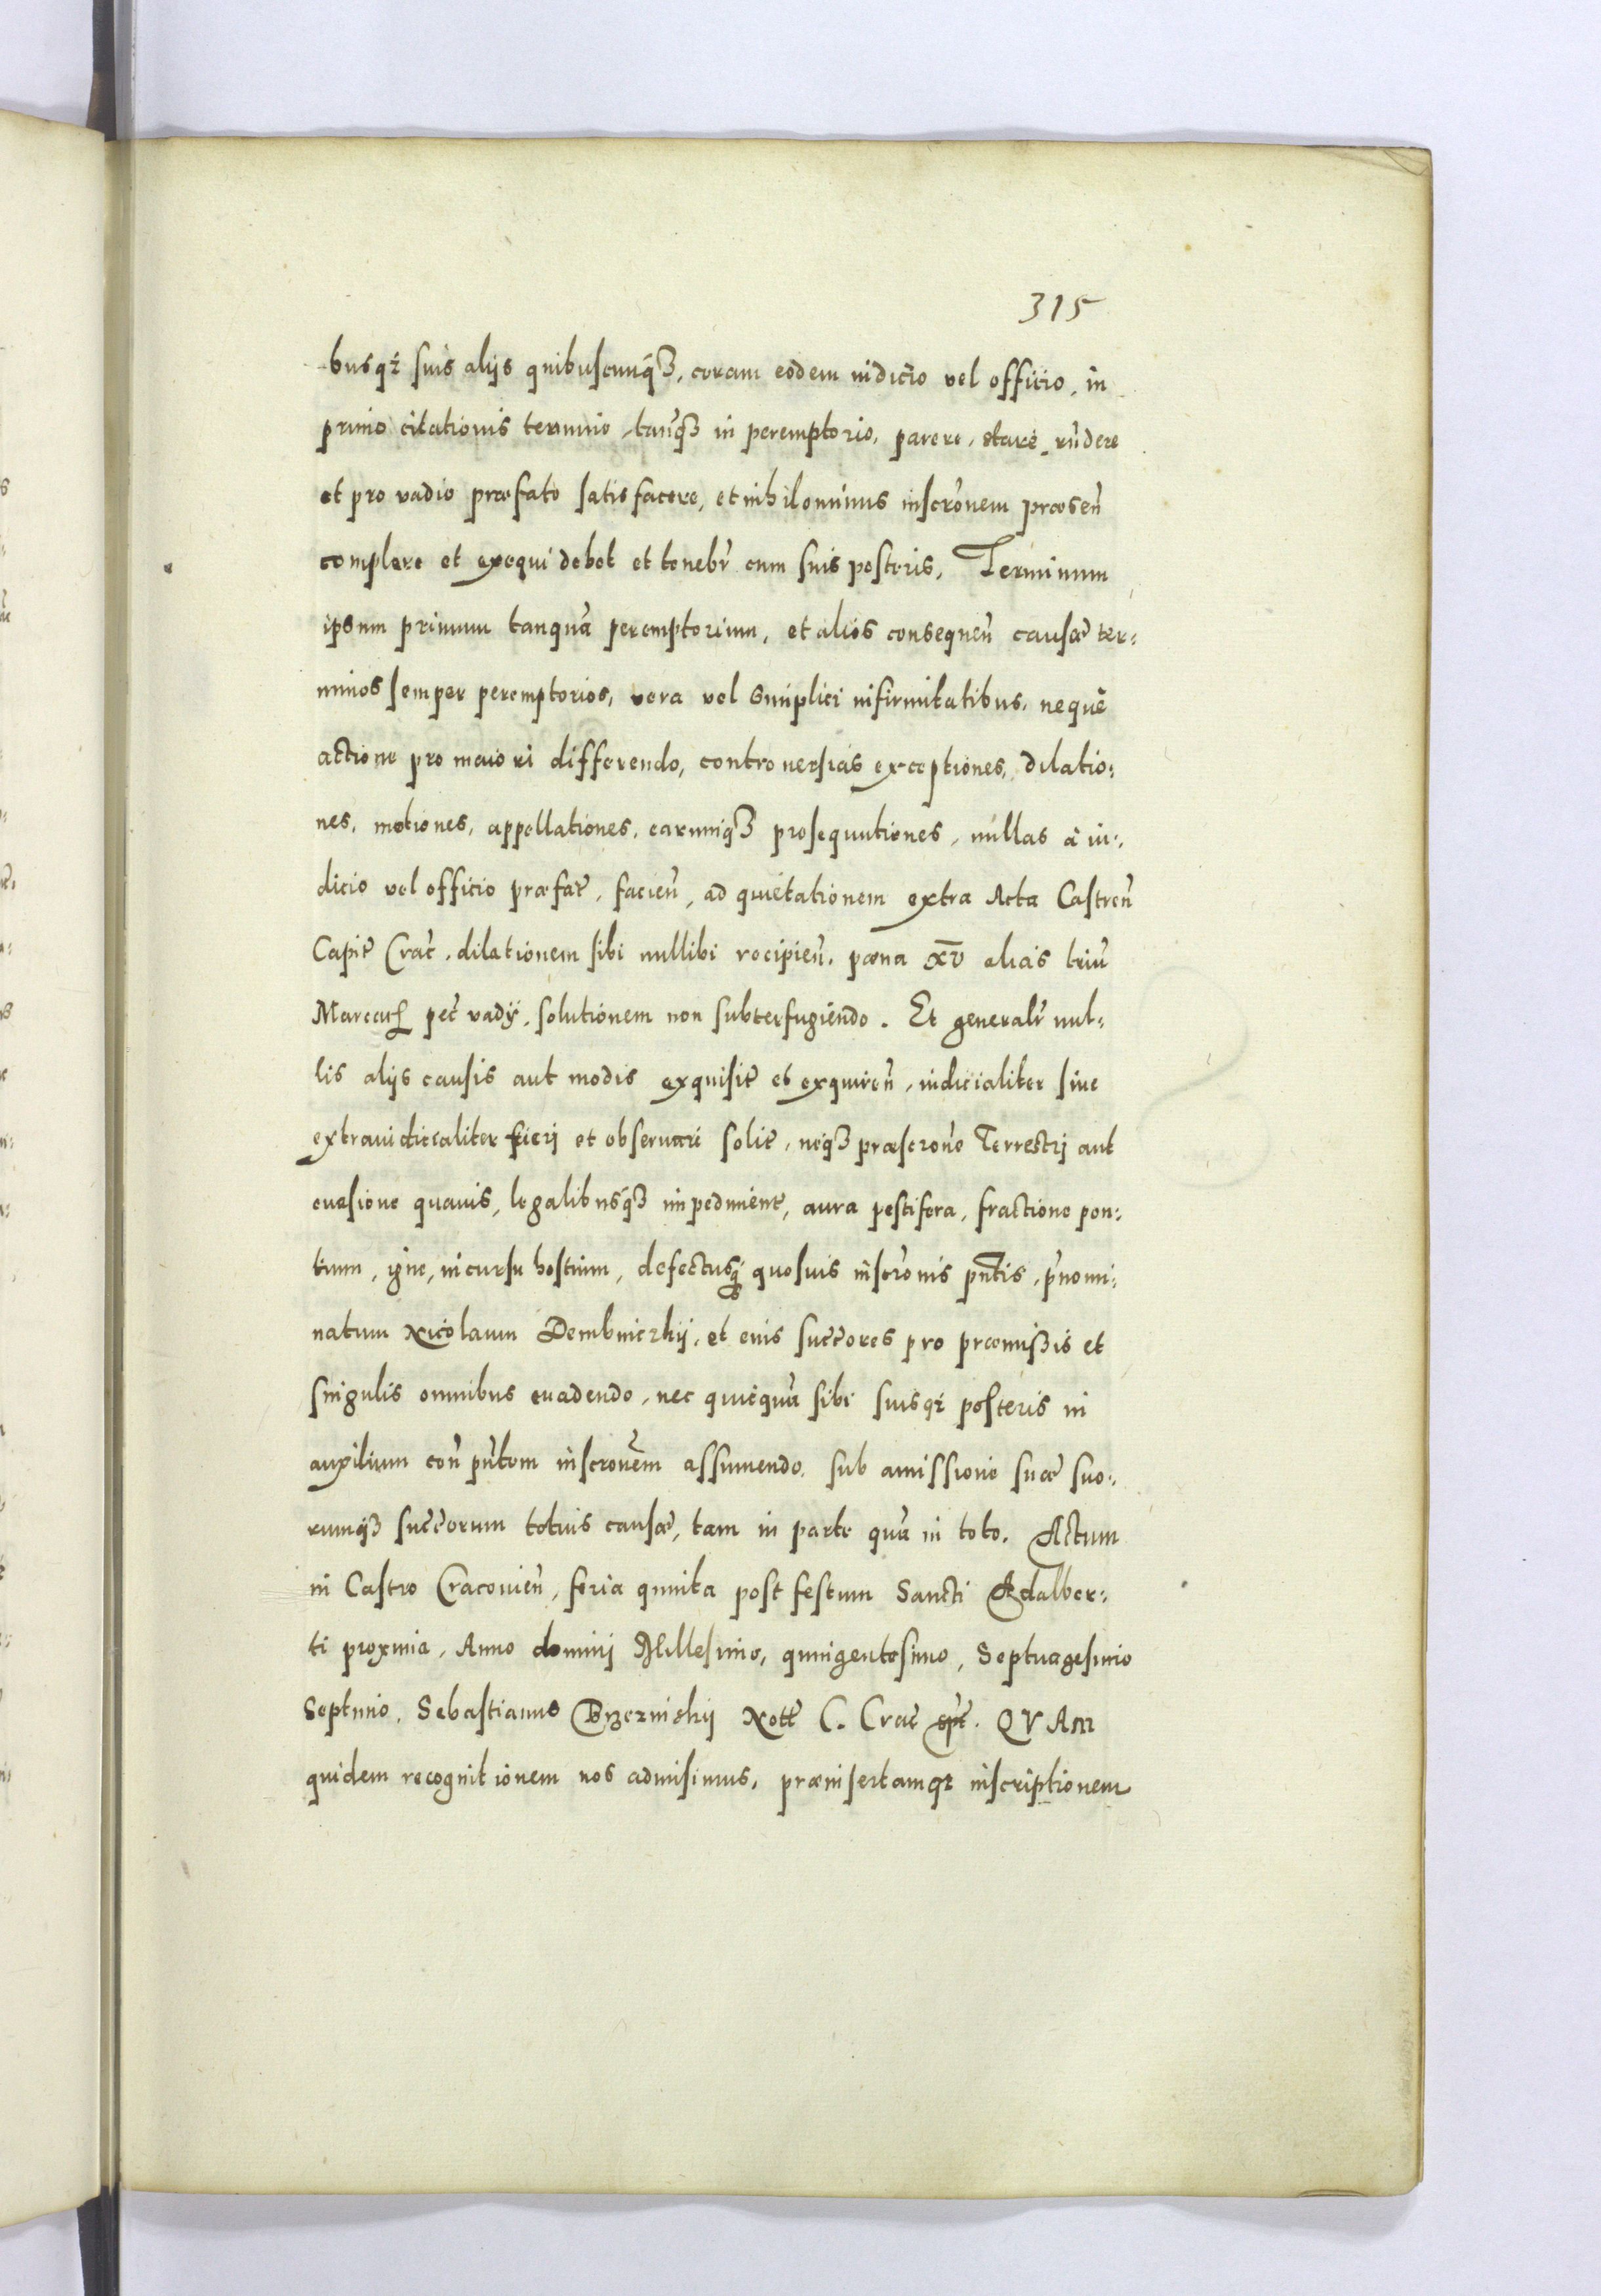 315
busq; suis alijs quibuscunq3, coram eodem iudicio vel officio, in
primo citationis termino, tanq3 in peremptorio, parere, stare, rn̄dere
et pro vadio præfato satisfacere, et nihilominus inscrōnem præsen̄
complere et exequi debet et tenebr̄ cum suis posteris. Terminum
ipsum primum tanquā peremptorium, et alios consequen̄ causæ ter:
minos semper peremptorios, vera vel simplici infirmitatibus, neque
actione pro maiori differendo, controuersias exceptiones, dilatio:
nes, motiones, appellationes, earumq3 prosequutiones, nullas à iu:
dicio vel officio præfat̄, facien̄, ad quietationem extra Acta Castren̄
Capit̄ Crac̄, dilationem sibi nullibi recipien̄, pæna XV alias triū
Marcaꝝ pec̄ vadij, solutionem non subterfugiendo. Et generalr̄ nul:
lis alijs causis aut modis exquisit̄ et exquiren̄, iudicialiter siue
extraiudicialiter fieri et obseruari solit̄, neq3 præscrōne Terrestrj aut
euasione quauis, legalibusq3 impedimen̄t, aura pestifera, fractione pon:
tium, igne, incursu hostium, defectusq3 quosuis inscrōnis pn̄tis, p̄nomi:
natum Nicolaum Dembniczkij, et eius succ̄ores pro præmissis et
singulis omnibus euadendo, nec quicquā sibi suisq; posteris in
auxilium con̄ pn̄tem inscrōnem assumendo, sub amissione suæ suo:
rumq3 succ̄orum totius causæ, tam in parte quā in toto. Actum
in Castro Cracouien̄, feria quinta post festum Sancti Adalber:
ti proxima, Anno dominj Millesimo, quingentesimo, Septuagesimo
Septimo. Sebastianus Brzezinskij Nott̄ C. Crac̄ spt̄. QVAM
quidem recognitionem nos admisimus, præinsertamq; inscriptionem